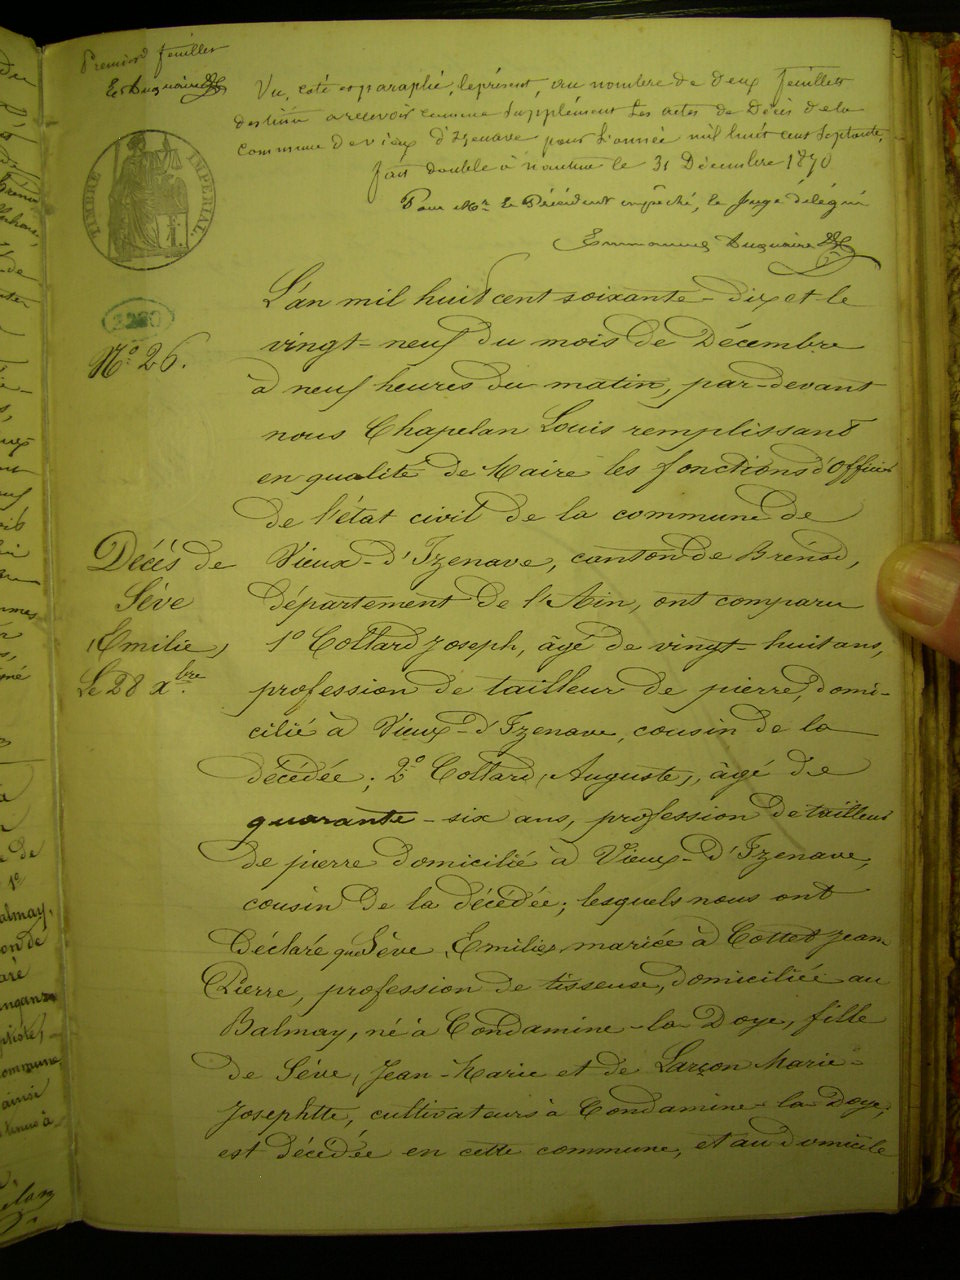 Premier feuillet
Vu, coté et paraphé, le présent, au nombre de deux feuillets
destiné a recevoir comme supplément les actes de Décès de la
Commune de vieux d'Izenave pour l'année mil huit cent soptante.
fait double à nantua le 31 Décembre 1870
Pour Mr. le Président empêché, le Juge délégué
TIMBRE IMPERIAL
No. 26.
Décès de
Sève
Emilie,
Le 28 Xbre.
L'an mil huit cent soixante-dix et le
vingt-neuf du mois de Décembre
à neuf heures du matin, par-devant
nous Chapelan Louis remplissant
en qualité de Maire les fonctions d'Officier
de l'état civil de la commune de
Vieux-d'Izenave, canton de Brénod,
département de l'Ain, ont comparu
1o Collard Joseph, âgé de vingt-huit ans,
profession de tailleur de pierre, domi-
cilié à Vieux-d'Izenave, cousin de la
décédée; 2o Collard, Auguste, âgé de
quarante-six ans, profession de tailleur
de pierre domicilié à Vieux-d'Izenave,
cousin de la décédée; lesquels nous ont
Déclaré que Sève, Emilie, mariée à Cottet Jean
Pierre, profession de tisseuse, domiciliée au
Balmay, né à Condamine-la-Doye, fille
de Sève, Jean-Marie et de Larçon Marie-
Josephtte, cultivateurs à Condamine-la-Doye,
est décédée en cette commune, et au domicile